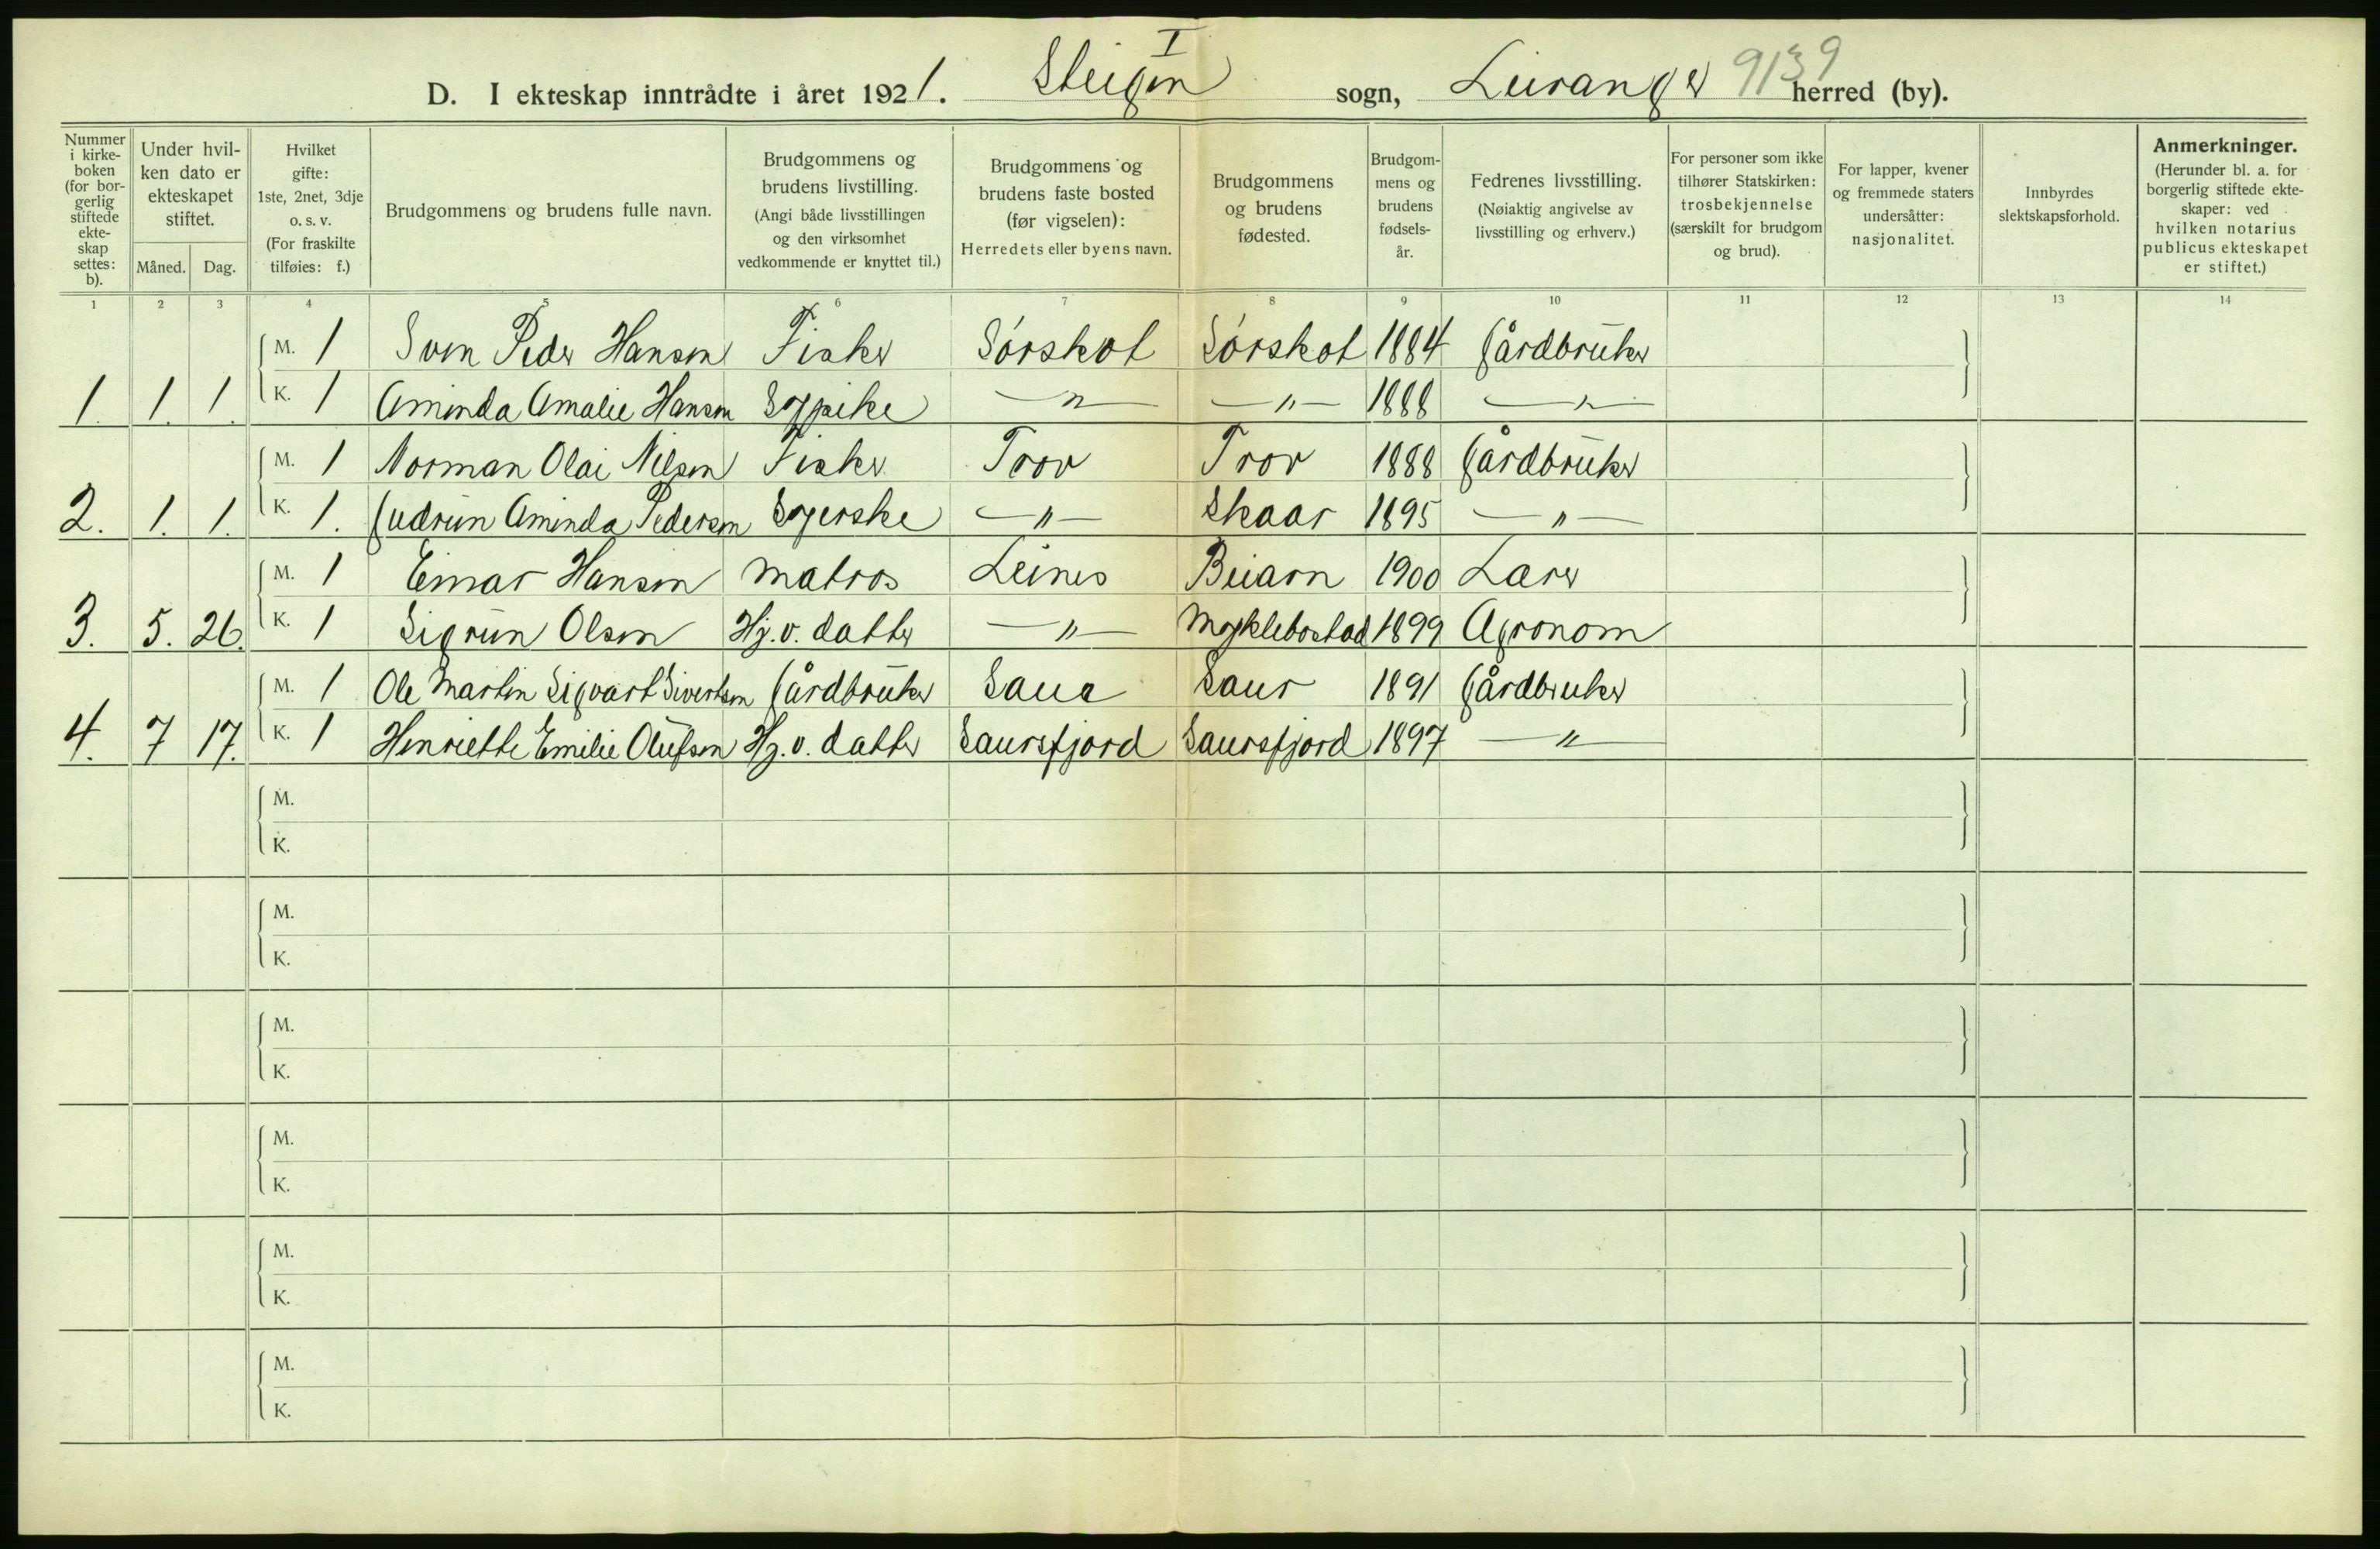 I
D. I ekteskap inntrådte i året 1921. Steigen sogn, Leiranger 9139 herred (by).
Nummer i kirkeboken (for borgerlig stiftede ekteskap settes: b).
Under hvilken dato er ekteskapet stiftet.
Måned. Dag.
Hvilket gifte: 1ste, 2net, 3dje o. s. v. (For fraskilte tilføies: f.)
Brudgommens og brudens fulle navn.
Brudgommens og brudens livstilling. (Angi både livsstillingen og den virksomhet vedkommende er knyttet til.)
Brudgommens og brudens faste bosted (før vigselen): Herredets eller byens navn.
Brudgommens og brudens fødested.
Brudgommens og brudens fødselsår.
Fedrenes livsstilling. (Nøiaktig angivelse av livsstilling og erhverv.)
For personer som ikke tilhører Statskirken: trosbekjennelse (særskilt for brudgom og brud).
For lapper, kvener og fremmede staters undersåtter: nasjonalitet.
Innbyrdes slektskapsforhold.
Anmerkninger. (Herunder bl. a. for borgerlig stiftede ekteskaper: ved hvilken notarius publicus ekteskapet er stiftet.)
1 2 3 4 5 6 7 8 9 10 11 12 13 14
M. 1 Sven Peder Hansen Fisker Sørskot Sørskot 1884 Gårdbruker
1. 1. 1. K. 1 Aminda Amalie Hansen Sypike — " — — " — 1888 — " —
M. 1 Norman Olai Nilsen Fisker Prov Prov 1888 Gårdbruker
2. 1. 1. K. 1. Gudrun Aminda Pedersen Syerske — " — Skaar 1895 — " —
M. 1 Einar Hansen Matros Leines Beiarn 1900 Lærer
3. 5. 26. K. 1 Sigrun Olsen Hj. v. datter — " — Myklebostad 1899 Agronom
M. 1 Ole Martin Sigvart Sivertsen Gårdbruker Saur Saur 1891 Gårdbruker
4. 7 17. K. 1 Henriette Emilie Olufsen Hj. v. datter Saursfjord Saursfjord 1897 — " —
M.
K.
M.
K.
M.
K.
M.
K.
M.
K.
M.
K.